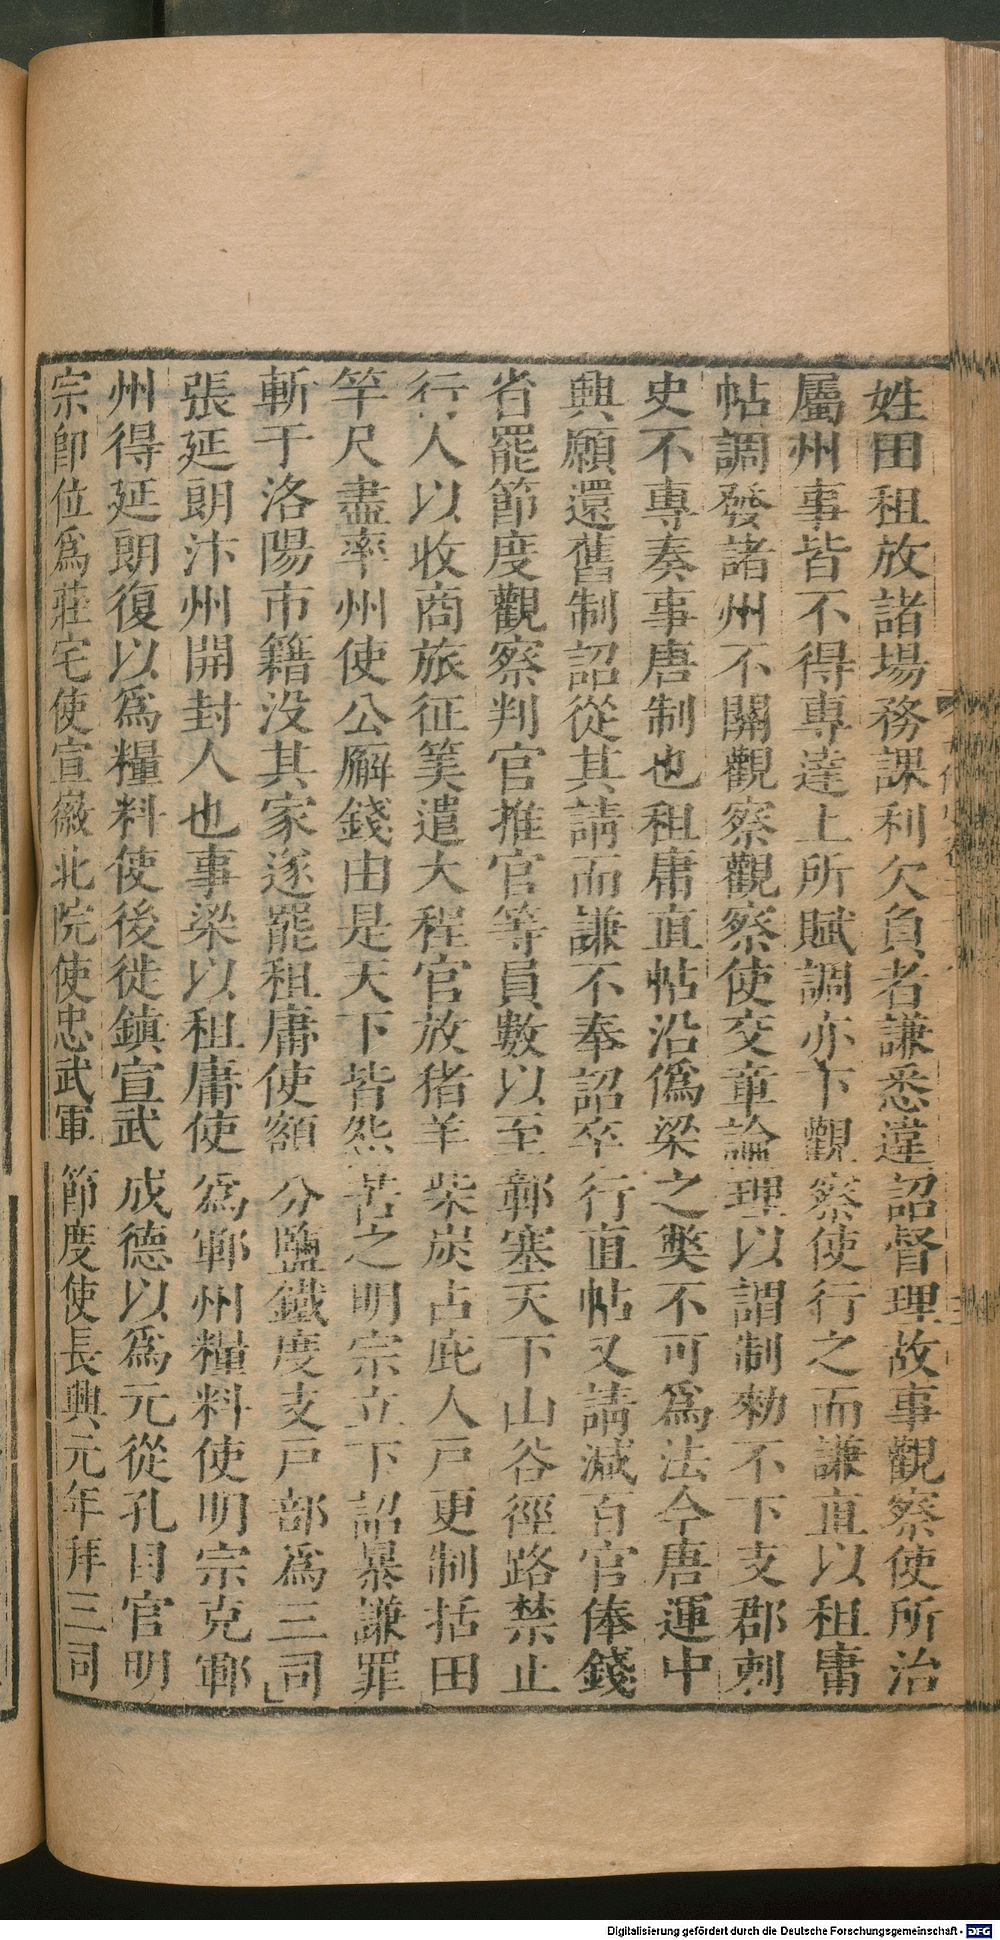 姓田租放諸場務課利欠負者謙悉違詔督理故事觀察使所治
屬州事皆不得專達上所賦調亦下觀察使行之而謙直以租庸
帖調發諸州不關觀察觀察使交章論理以謂制勑不下支郡刺
史不專奏事唐制也租庸直帖沿僞梁之獘不可爲法今唐運中
興願還舊制詔從其請而謙不奉詔卒行直帖又請減百官俸錢
省罷節度觀察判官推官等員數以至鄣塞天下山谷徑路禁止
行人以收商旅征筭遣大程官放猪羊柴炭占庇人戶更制括田
竿尺盡率州使公廨錢由是天下皆怨苦之明宗立下詔暴謙罪
斬于洛陽市籍没其家遂罷租庸使額分鹽鐵度支戶部爲三司
張延朗汴州開封人也事梁以租庸使爲鄆州糧料使明宗克鄆
州得延朗復以爲糧料使後徙鎮宣武成德以爲元從孔目官明
宗卽位爲莊宅使宣徽北院使忠武軍節度使長興元年拜三司
Digitalisierung gefördert durch die Deutsche Forschungsgemeinschaft - DFG